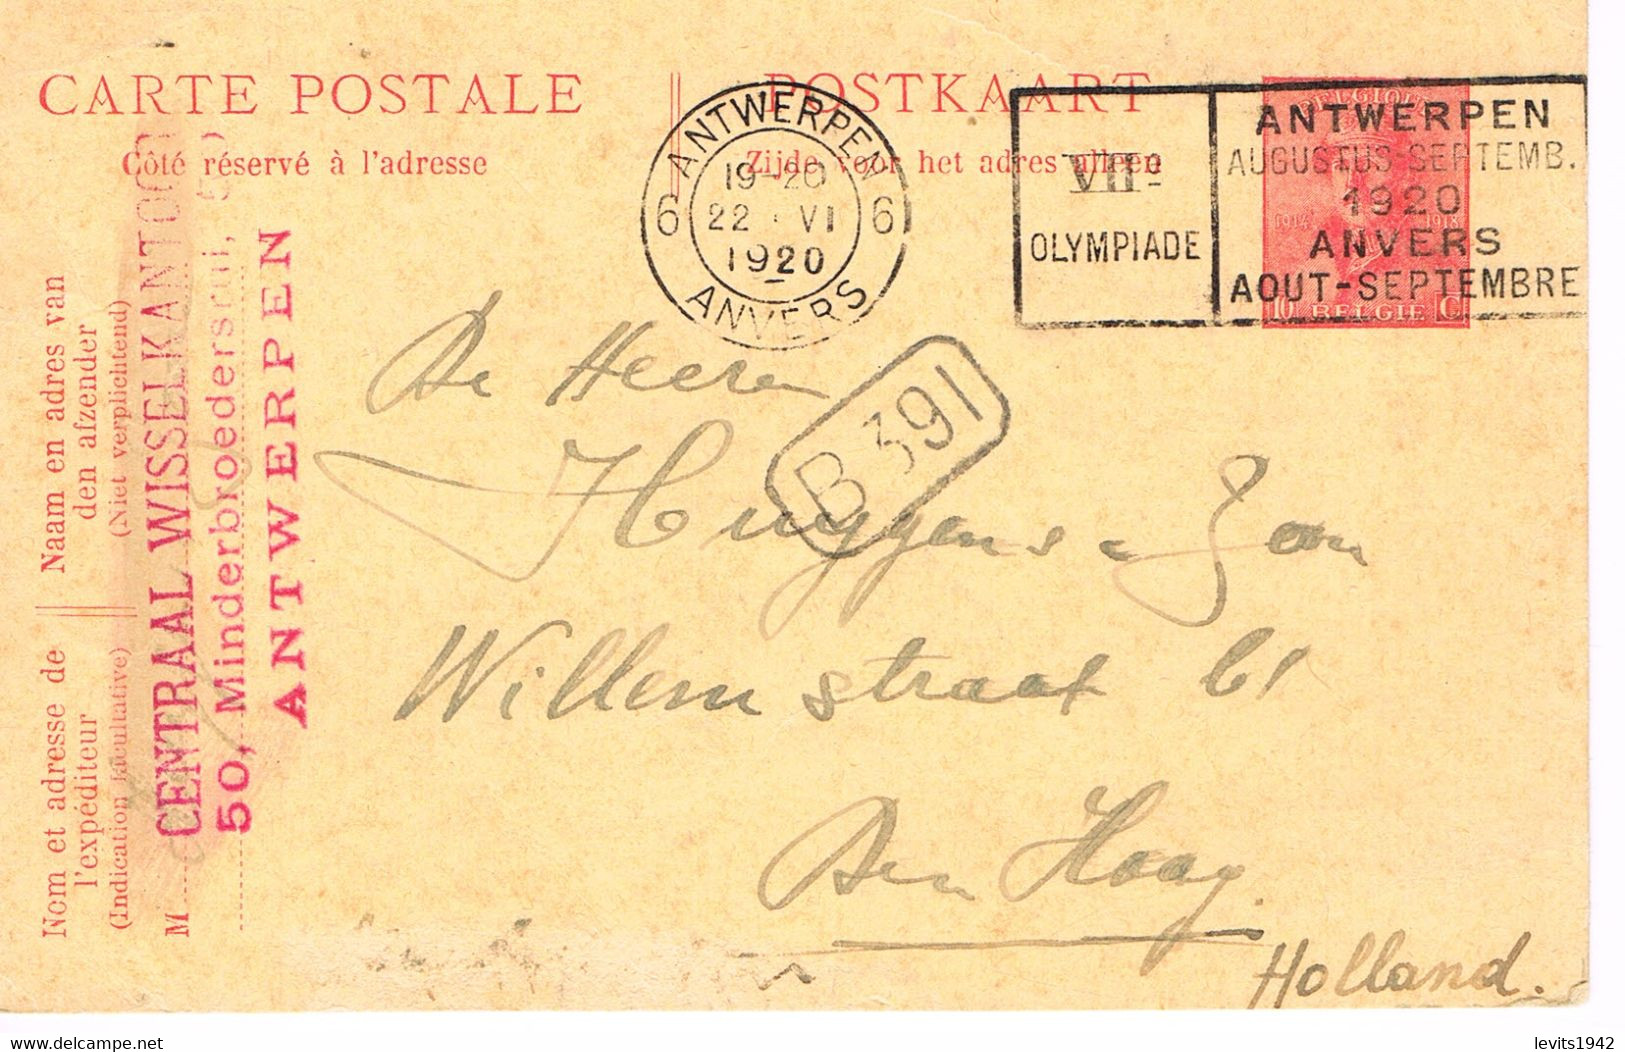 CARTE POSTALE
POSTKAART
Côté réservé à l'adresse
Zijde voor het adres alleen
ANTWERPEN
6 19-20 6
22 VI
1920
ANVERS
VIIe
OLYMPIADE
ANTWERPEN
AUGUSTUS-SEPTEMB.
1920
ANVERS
AOUT-SEPTEMBRE
BELGIQUE
1914 1918
10 BELGIE C
Naam en adres van
den afzender
(Niet verplichtend)
Nom et adresse de
l'expéditeur
(Indication facultative)
M
CENTRAAL WISSELKANTOOR
50, Minderbroedersrui,
ANTWERPEN
B 391
De Heeren
Huygens & Zoon
Willemstraat 61
Den Haag.
Holland.
delcampe.net
levits1942